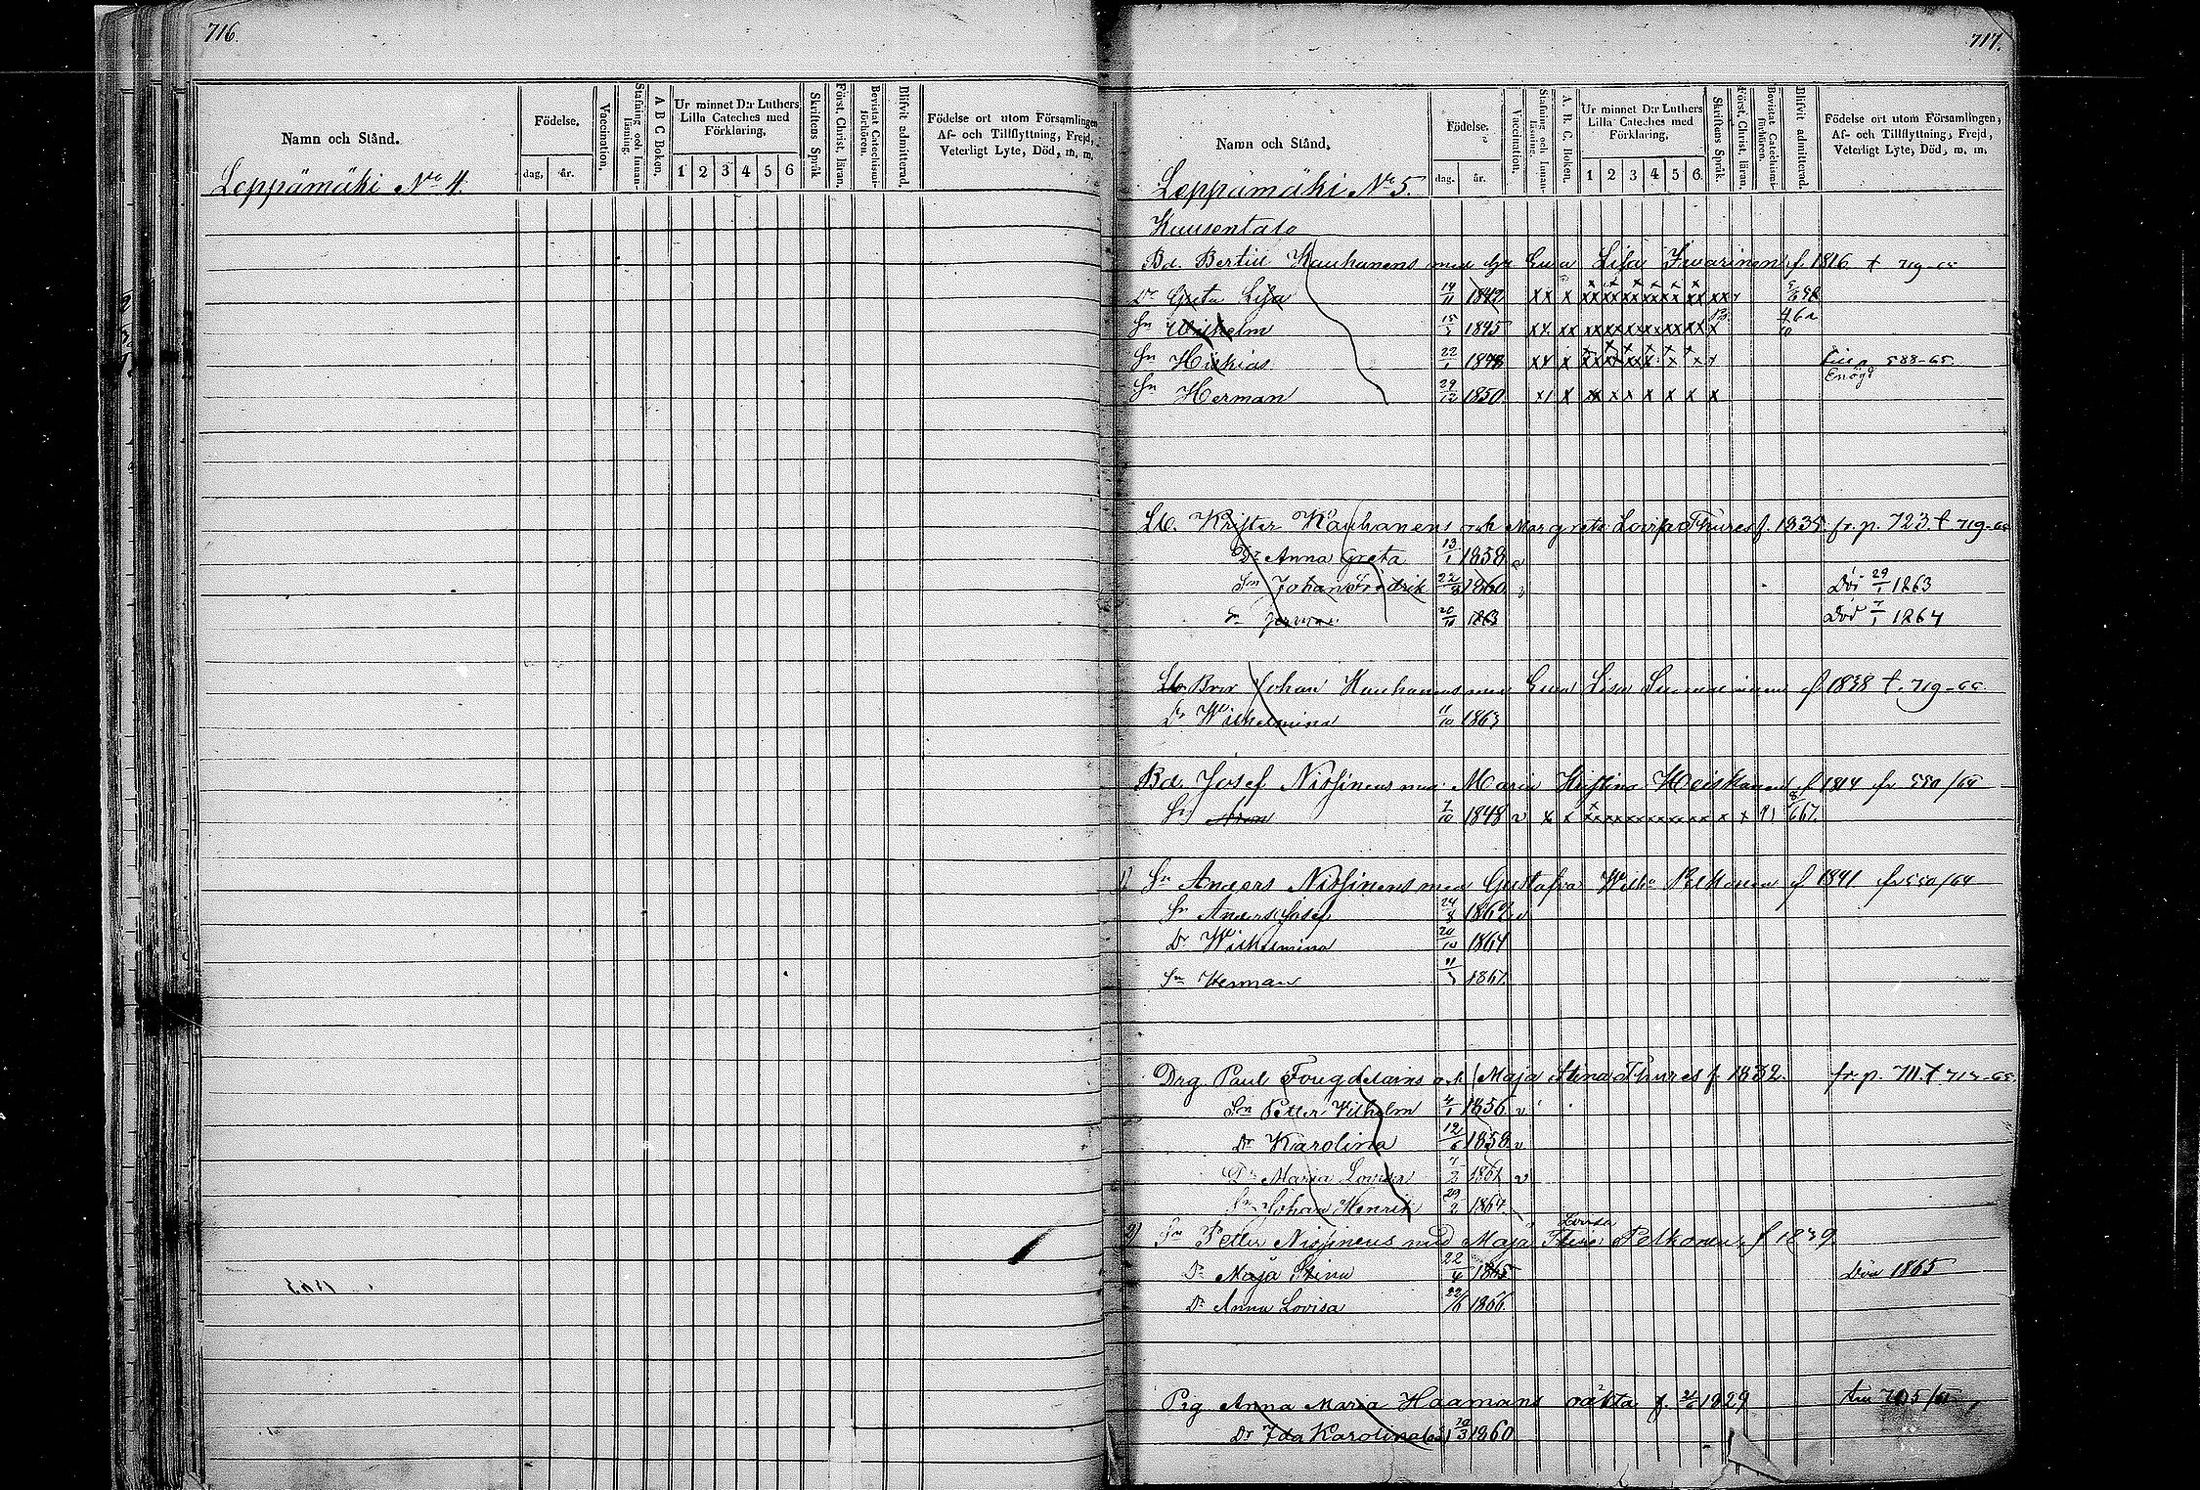 716
Namn och Stånd.
Födelse.
dag, år.
Vaccination,
Stafning och Innan-läsning.
A B C Boken,
Ur minnet D:r Luthers Lilla Cateches med Förklaring,
1 2 3 4 5 6
Skriftens Språk
Först. Christ. läran,
Bevistat Catechismi-förhören.
Blifvit admitterad.
Födelse ort utom Församlingen
Af- och Tillflyttning, Frejd,
Veterligt Lyte, Död, m. m.
Leppämäki No 4.
717.
Namn och Stånd.
Födelse.
dag. år.
Vaccination.
Stafning och Innan-läsning.
A. B. C. Boken.
Ur minnet D:r Luthers Lilla Cateches med Förklaring,
1 2 3 4 5 6
Skriftens Språk.
Först. Christ. läran.
Bevistat Catechismi-förhören.
Blifvit admitterad.
Födelse ort utom Församlingen,
Af- och Tillflyttning, Frejd,
Veterligt Lyte, Död, m. m.
Leppämäki No 5.
Bd. Bertill Kauhanens med Eva Lisa f. 1816 719-65
Dr Greta Lisa 14/11 1842
Sn Wilhelm 15/5 1845
Sn Hiskias 22/1 1848 588-65
Enögd
Sn Herman 29/12 1850
Krister Kauhanens och Margreta Lovisa Thures f. 1835 fr. p. 723 719-65
Dr Anna Greta 13/1 1858 v
Sn Johan Fredrik 22/3 1860 Död 29/1 1863
Sn Herman 20/11 1863 Död 7/1 1864
Bror Johan Kauhanens med Eva Lisa f 1838 719-65
Dr Wilhelmina 11/10 1863
Bd. Josef Nissinens med Maria Kristina Heiskanen f 1814 fr 550/64
Sn Aron 7/10 1848 v
1) Sn Anders Nissinens med Gustafva Wilh:a Pelkonen f 1841 fr 550/64
Sn Anders Josef 24/8 1862 v
Dr Wilhelmina 20/10 1864
Sn Herman 1867
Drg Paul Fougdelains och Maja Stina Thures f. 1832. fr. p. 711
Sn Petter Vilhelm 4/1 1856 v
Dr Karolina 12/6 1858 v
Dr Maria Lovisa 1861 v
Sn Johan Henrik 29/2 1864
2) Sn Petter Nissinens med Maja Lovisa Pelkonen f 1839
Dr Maja Stina 22/4 1865 Död 1865
Dr Anna Lovisa 22/6 1866
Pig Anna Maria Haamans oäkta f. 1829 705
Dr Ida Karolina 19/3 1860